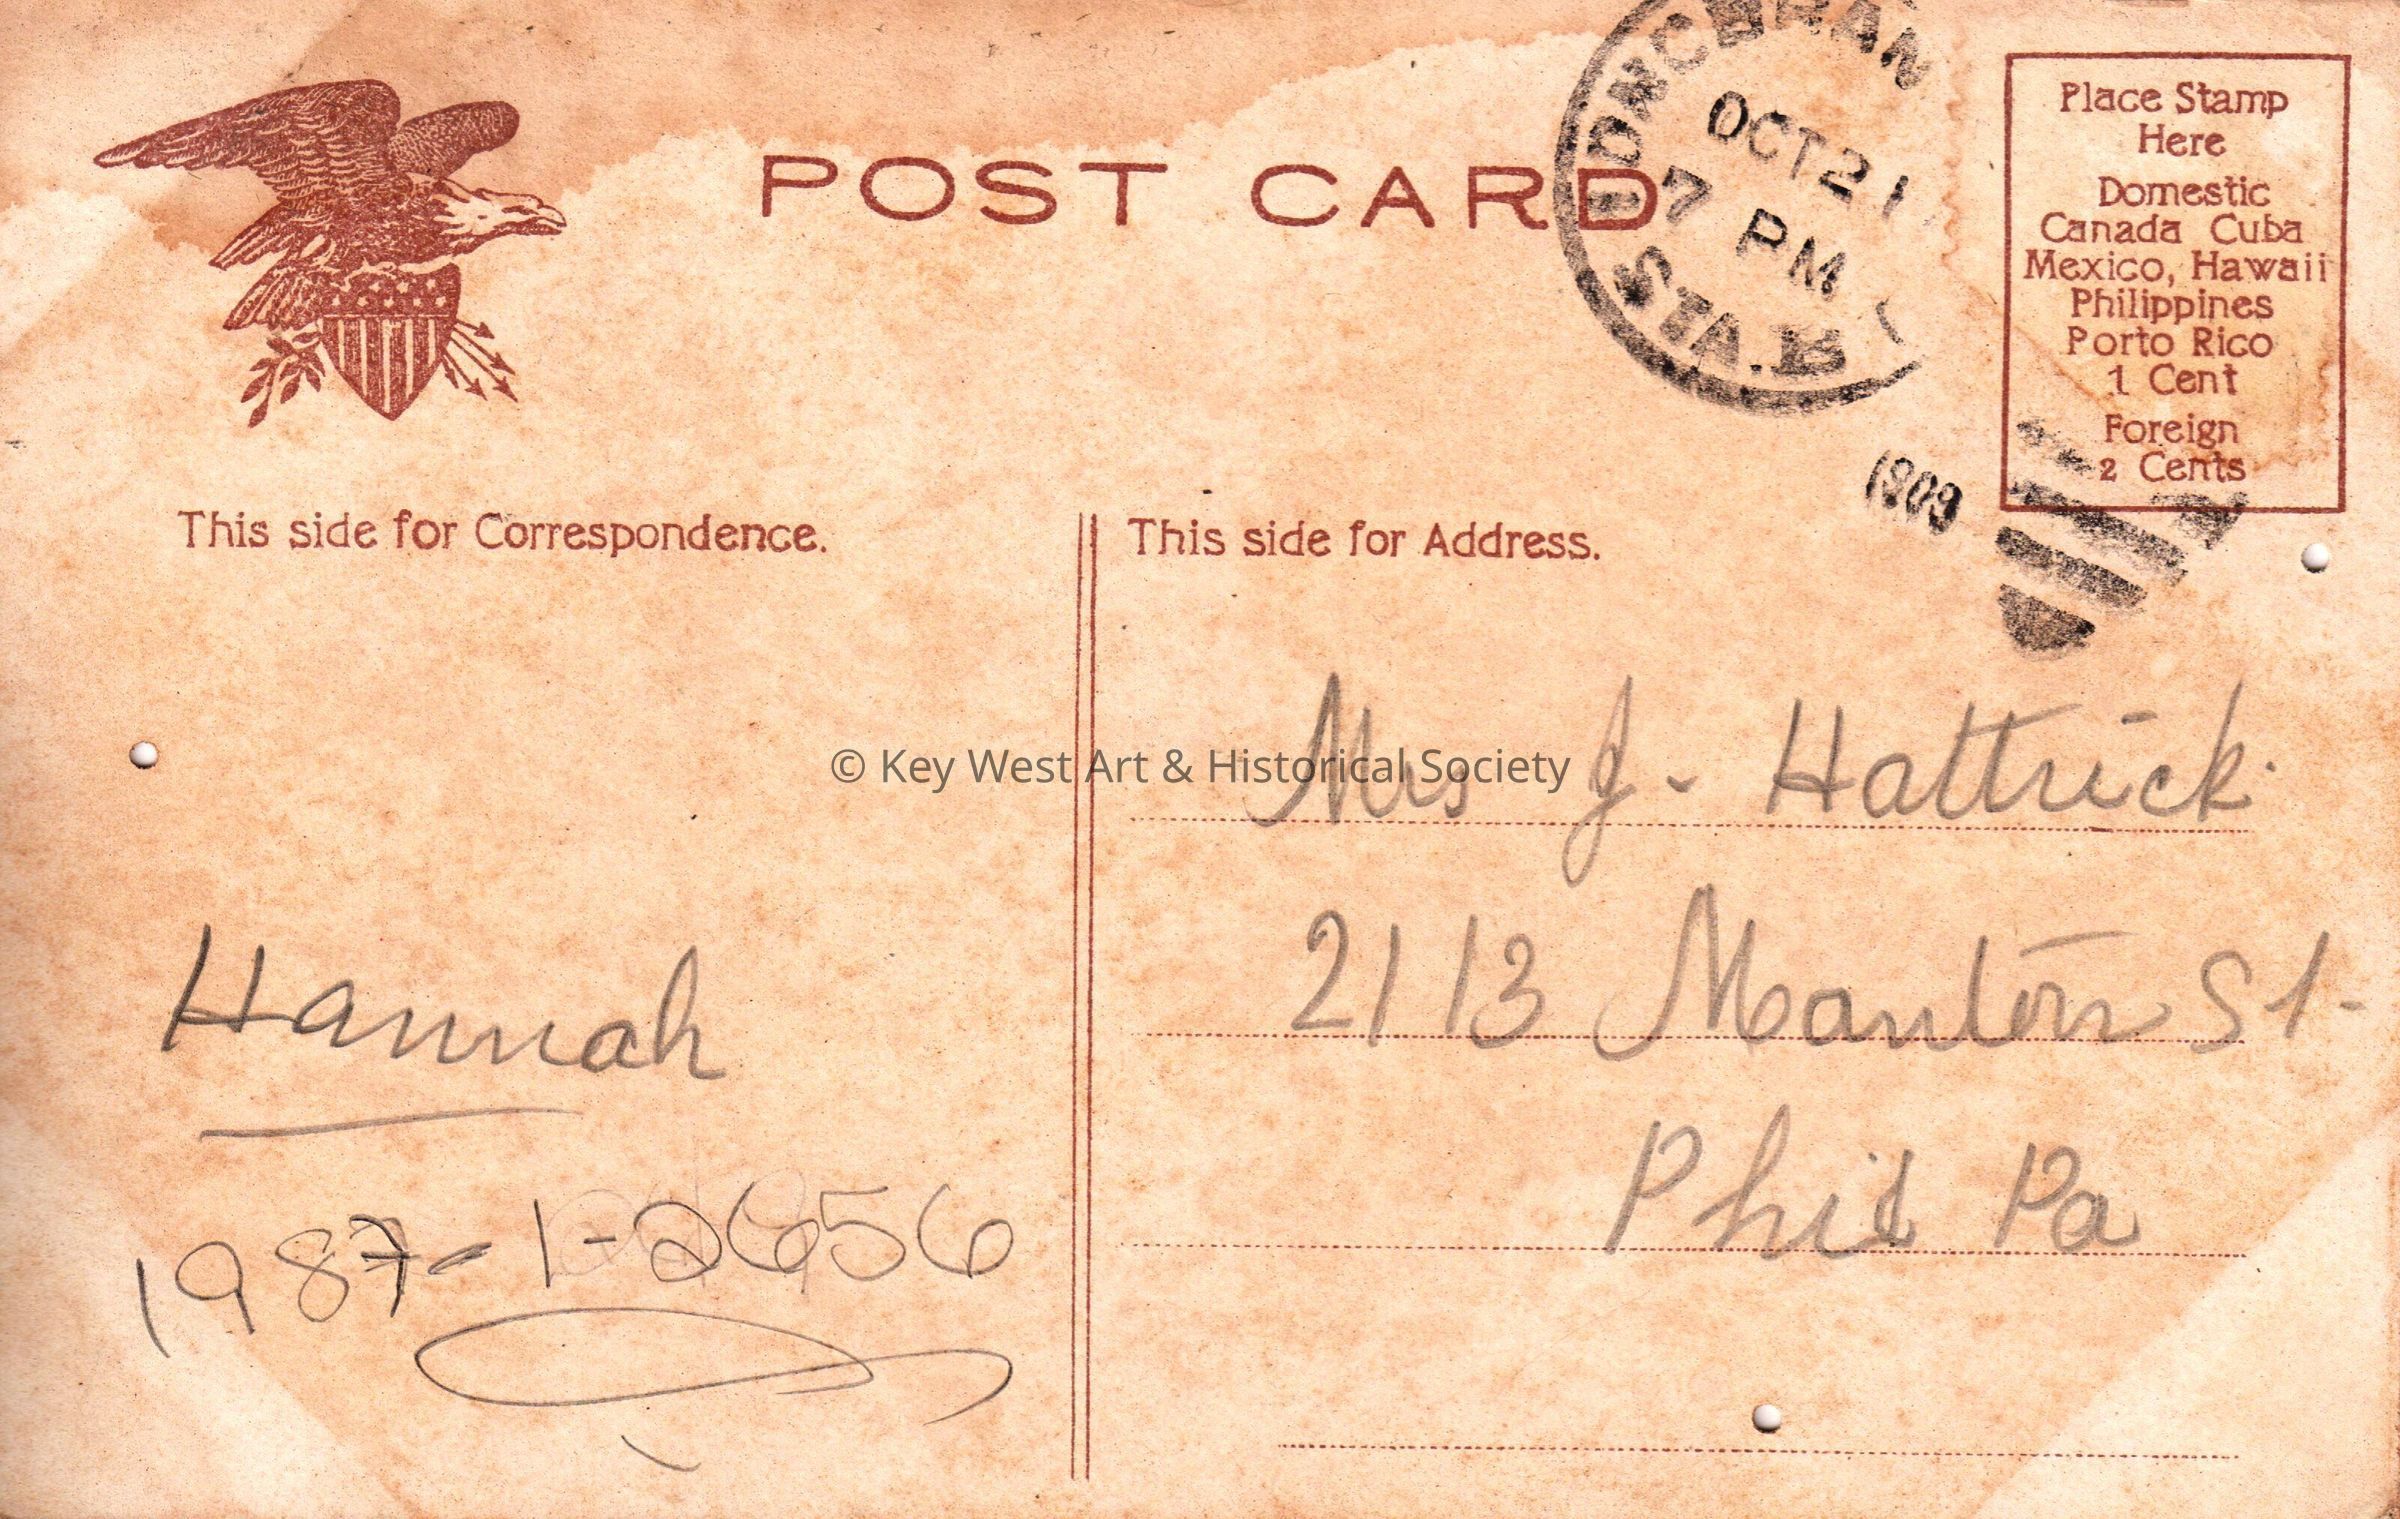 POST CARD
OCT 21
7 PM
STA. B
1909
Place Stamp
Here
Domestic
Canada Cuba
Mexico, Hawaii
Philippines
Porto Rico
1 Cent
Foreign
2 Cents
This side for Correspondence.
This side for Address.
© Key West Art & Historical Society
Mrs J. Hattrick.
2113 Manton St.
Phil Pa
Hannah
1987-1-2656